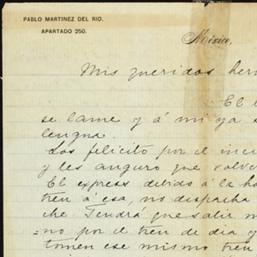 PABLO MARTINEZ DEL RIO.
APARTADO 250.
México,
Mis queridos her
El
se lame y á mi ya s
lengua.
Los felicito por el inci
y les auguro que volve
El express debido á la ho
tren á esa, no despacha
che Tendrá que salir m
no por el tren de dia y
tomen ese mismo tren